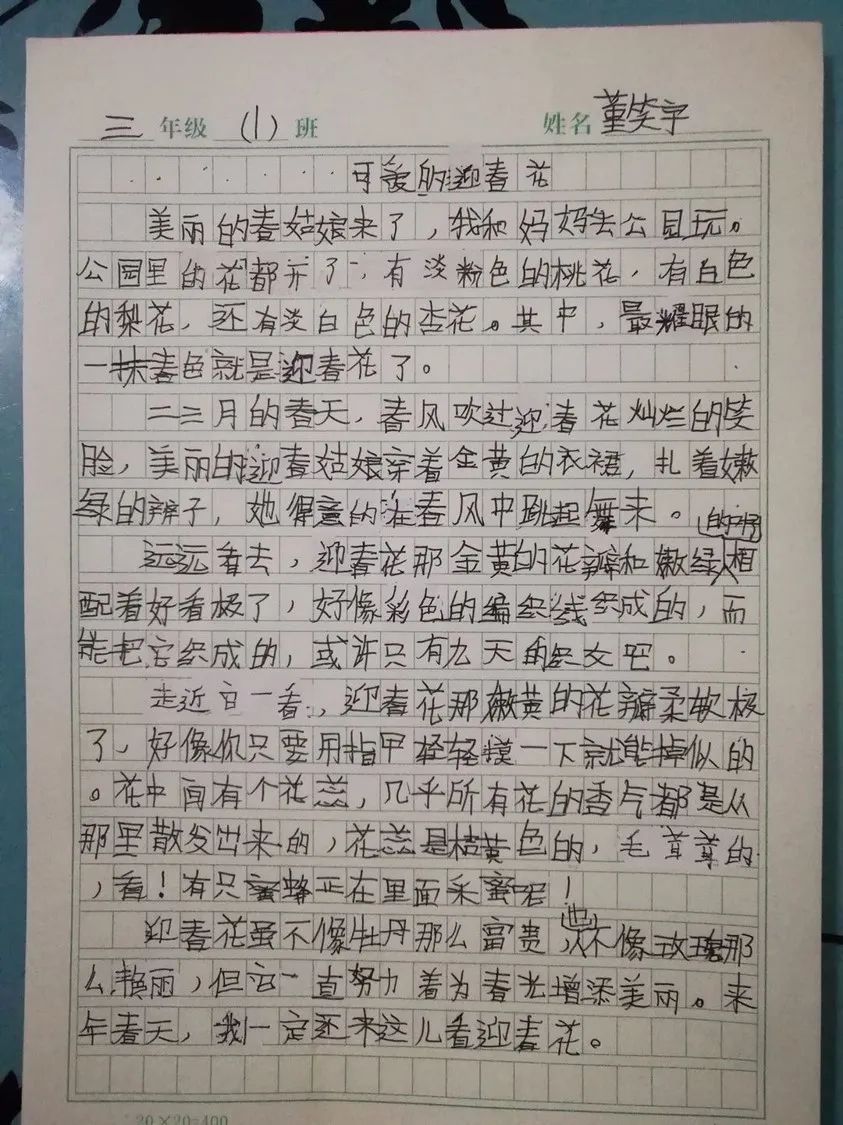 三 年级 (1) 班 姓名 董笑宇
可爱的迎春花
美丽的春姑娘来了，我和妈妈去公园玩。
公园里的花都开了，有淡粉色的桃花，有白色
的梨花，还有淡白色的杏花。其中，最耀眼的
一抹春色就是迎春花了。
二三月的春天，春风吹过迎春花灿烂的笑
脸，美丽的迎春姑娘穿着金黄的衣裙，扎着嫩
绿的辫子，她得意的在春风中跳起舞来。
远远看去，迎春花那金黄的花瓣和嫩绿的叶子相
配着好看极了，好像彩色的编织线织成的，而
能把它织成的，或许只有九天的织女吧。
走近它一看，迎春花那嫩黄的花瓣柔软极
了，好像你只要用指甲轻轻摸一下就能掉似的
。花中间有个花蕊，几乎所有花的香气都是从
那里散发出来的，花蕊是桔黄色的，毛茸茸的
，看！有只蜜蜂正在里面采蜜呢！
迎春花虽不像牡丹那么富贵，也不像玫瑰那
么艳丽，但它一直努力着为春光增添美丽。来
年春天，我一定还来这儿看迎春花。
20×20=400